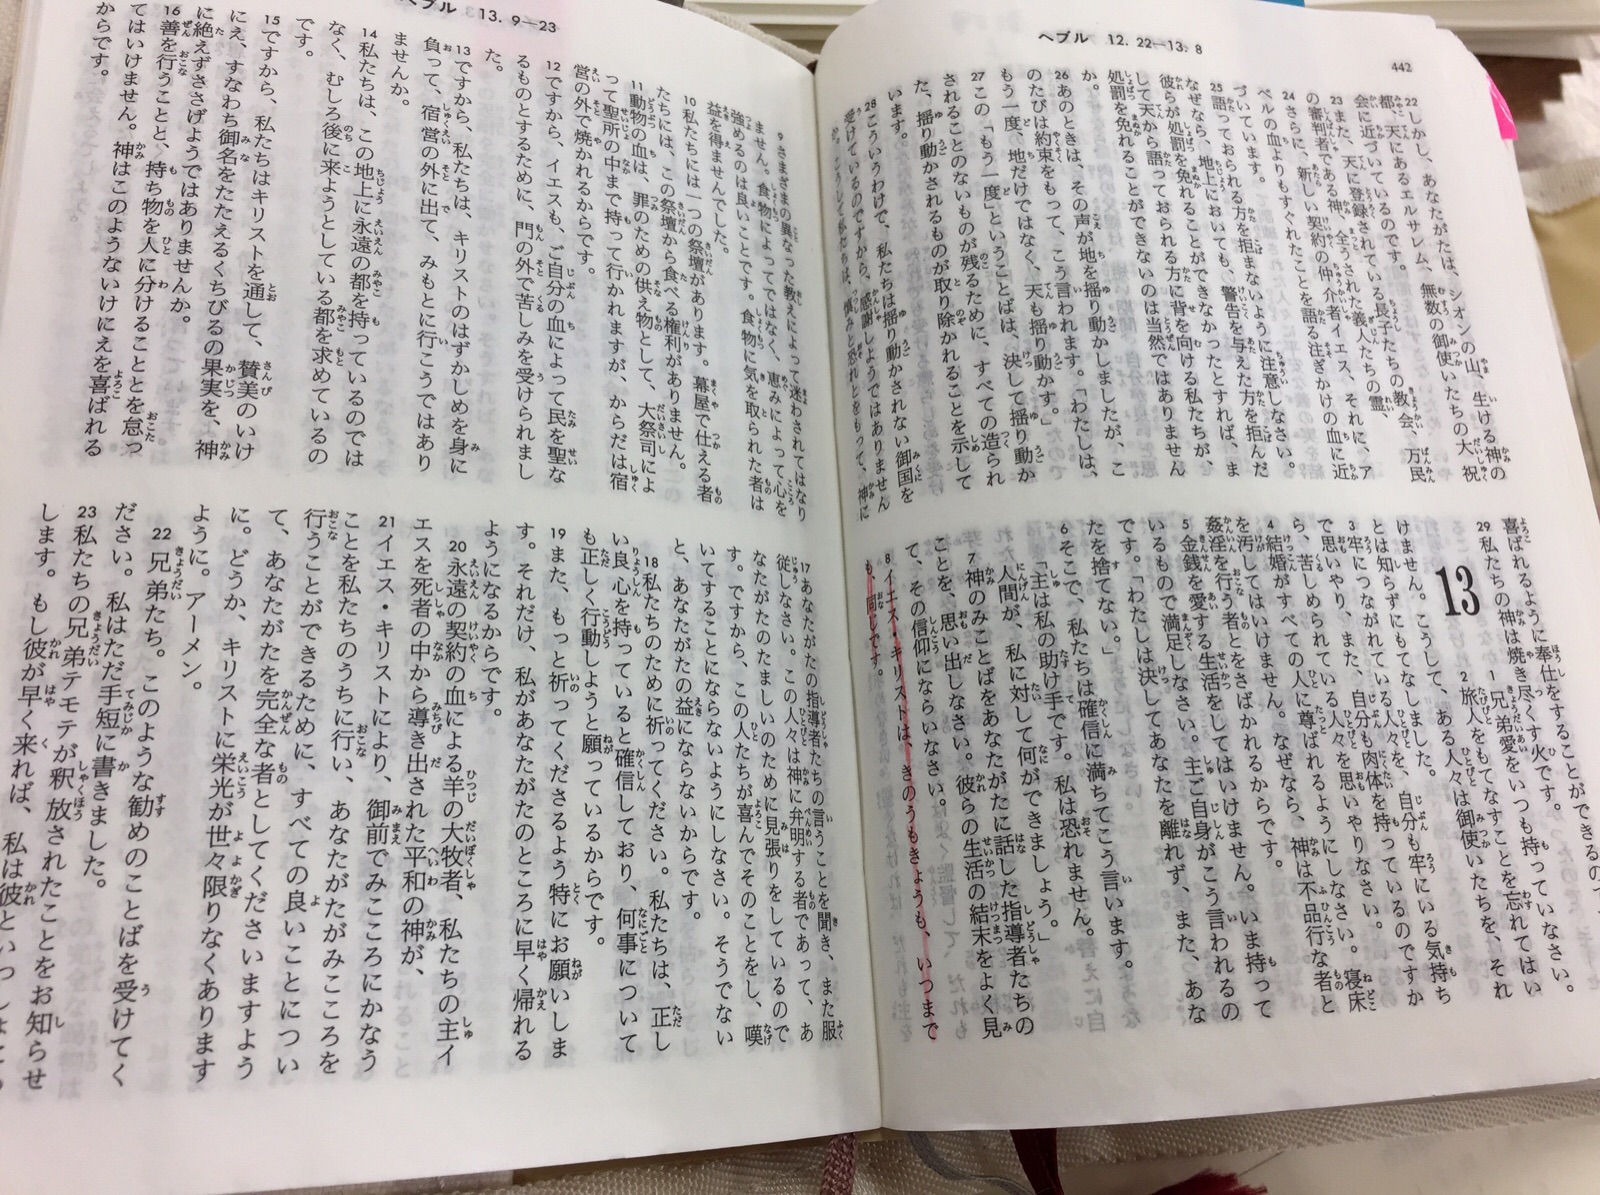 442
ヘブル 12. 22—13. 8
22しかし、あなたがたは、シオンの山、生ける神の
都、天にあるエルサレム、無数の御使いたちの大祝
会に近づいているのです。
23また、天に登録されている長子たちの教会、万民
の審判者である神、全うされた義人たちの霊、
24さらに、新しい契約の仲介者イエス、それに、ア
ベルの血よりもすぐれたことを語る注ぎかけの血に近
づいています。
25語っておられる方を拒まないように注意しなさい。
なぜなら、地上においても、警告を与えた方を拒んだ
彼らが処罰を免れることができなかったとすれば、ま
して天から語っておられる方に背を向ける私たちが、
処罰を免れることができないのは当然ではありません
か。
26あのときは、その声が地を揺り動かしましたが、こ
のたびは約束をもって、こう言われます。「わたしは、
もう一度、地だけではなく、天も揺り動かす。」
27この「もう一度」ということばは、決して揺り動か
されることのないものが残るために、すべての造られ
た、揺り動かされるものが取り除かれることを示して
います。
28こういうわけで、私たちは揺り動かされない御国を
受けているのですから、感謝しようではありません
か。こうして私たちは、慎みと恐れとをもって、神に
喜ばれるように奉仕をすることができるの
29私たちの神は焼き尽くす火です。
13
1 兄弟愛をいつも持っていなさい。
2 旅人をもてなすことを忘れてはい
けません。こうして、ある人々は御使いたちを、それ
とは知らずにもてなしました。
3 牢につながれている人々を、自分も牢にいる気持ち
で思いやり、また、自分も肉体を持っているのですか
ら、苦しめられている人々を思いやりなさい。
4 結婚がすべての人に尊ばれるようにしなさい。寝床
を汚してはいけません。なぜなら、神は不品行な者と
姦淫を行う者とをさばかれるからです。
5 金銭を愛する生活をしてはいけません。いま持って
いるもので満足しなさい。主ご自身がこう言われるの
です。「わたしは決してあなたを離れず、また、あな
たを捨てない。」
6 そこで、私たちは確信に満ちてこう言います。
「主は私の助け手です。私は恐れません。
人間が、私に対して何ができましょう。」
7 神のみことばをあなたがたに話した指導者たちの
ことを、思い出しなさい。彼らの生活の結末をよく見
て、その信仰にならいなさい。
8 イエス・キリストは、きのうもきょうも、いつまで
も、同じです。
ヘブル 13. 9—23
9 さまざまの異なった教えによって迷わされてはなり
ません。食物によってではなく、恵みによって心を
強めるのは良いことです。食物に気を取られた者は
益を得ませんでした。
10私たちには一つの祭壇があります。幕屋で仕える者
たちには、この祭壇から食べる権利がありません。
11動物の血は、罪のための供え物として、大祭司によ
って聖所の中まで持って行かれますが、からだは宿
営の外で焼かれるからです。
12ですから、イエスも、ご自分の血によって民を聖な
るものとするために、門の外で苦しみを受けられまし
た。
13ですから、私たちは、キリストのはずかしめを身に
負って、宿営の外に出て、みもとに行こうではあり
ませんか。
14私たちは、この地上に永遠の都を持っているのでは
なく、むしろ後に来ようとしている都を求めているの
です。
15ですから、私たちはキリストを通して、賛美のいけ
にえ、すなわち御名をたたえるくちびるの果実を、神
に絶えずささげようではありませんか。
16善を行うことと、持ち物を人に分けることとを怠っ
てはいけません。神はこのようないけにえを喜ばれる
からです。
17あなたがたの指導者たちの言うことを聞き、また服
従しなさい。この人々は神に弁明する者であって、あ
なたがたのたましいのために見張りをしているので
す。ですから、この人たちが喜んでそのことをし、嘆
いてすることにならないようにしなさい。そうでない
と、あなたがたの益にならないからです。
18私たちのために祈ってください。私たちは、正し
い良心を持っていると確信しており、何事について
も正しく行動しようと願っているからです。
19また、もっと祈ってくださるよう特にお願いしま
す。それだけ、私があなたがたのところに早く帰れる
ようになるからです。
20永遠の契約の血による羊の大牧者、私たちの主イ
エスを死者の中から導き出された平和の神が、
21イエス・キリストにより、御前でみこころにかなう
ことを私たちのうちに行い、あなたがたがみこころを
行うことができるために、すべての良いことについ
て、あなたがたを完全な者としてくださいますよう
に。どうか、キリストに栄光が世々限りなくあります
ように。アーメン。
22兄弟たち。このような勧めのことばを受けてく
ださい。私はただ手短に書きました。
23私たちの兄弟テモテが釈放されたことをお知らせ
します。もし彼が早く来れば、私は彼といっしょに